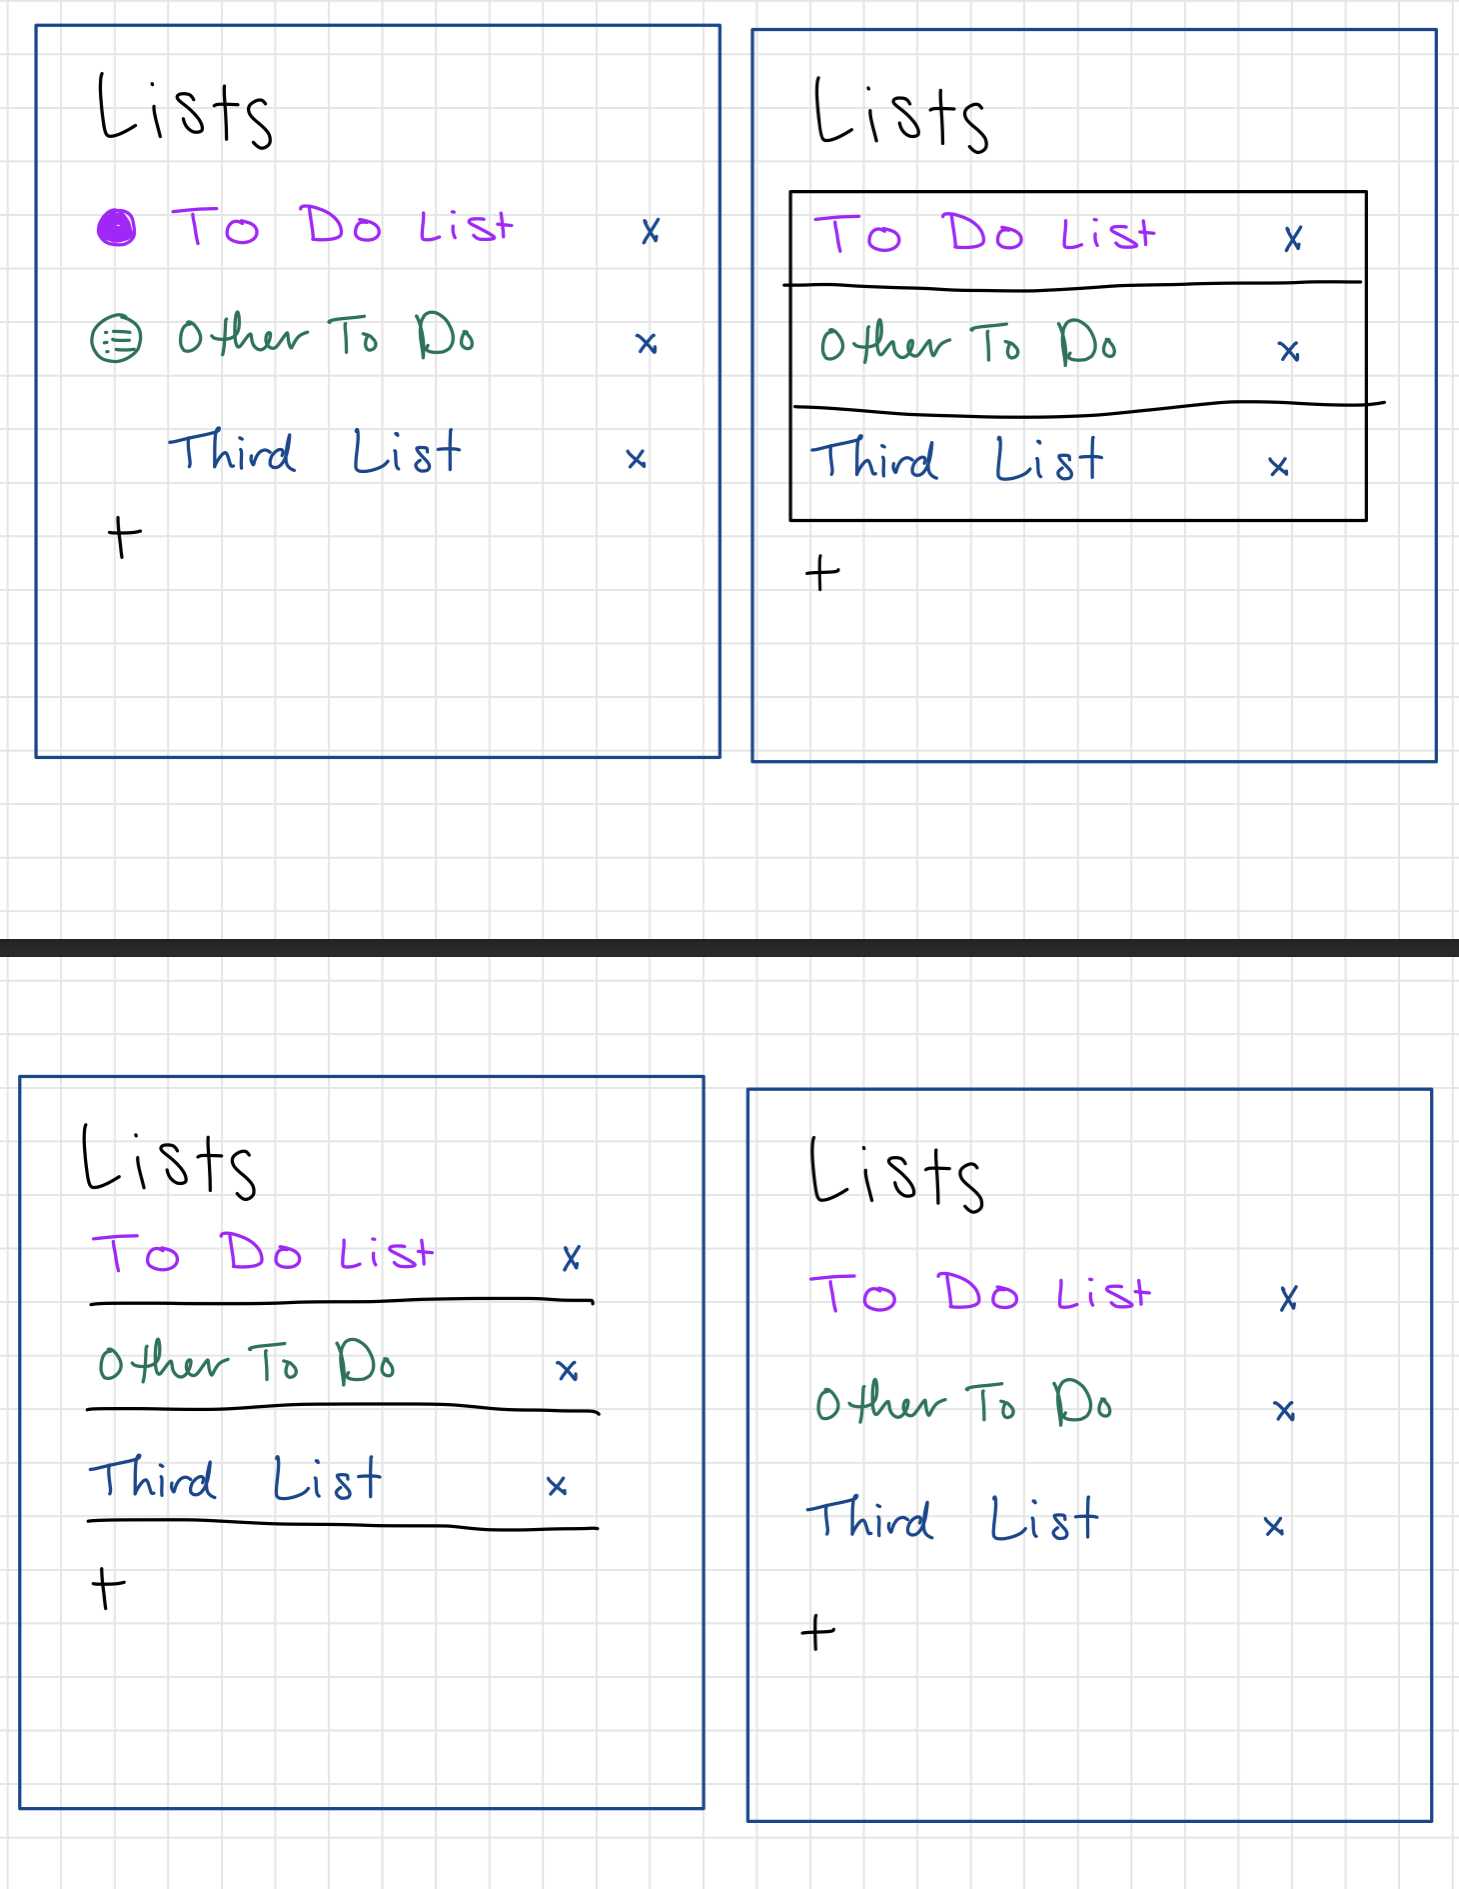 Lists
To Do List x
Other To Do x
Third List x
+
Lists
To Do List x
Other To Do x
Third List x
+
Lists
To Do List x
Other To Do x
Third List x
+
Lists
To Do List x
Other To Do x
Third List x
+